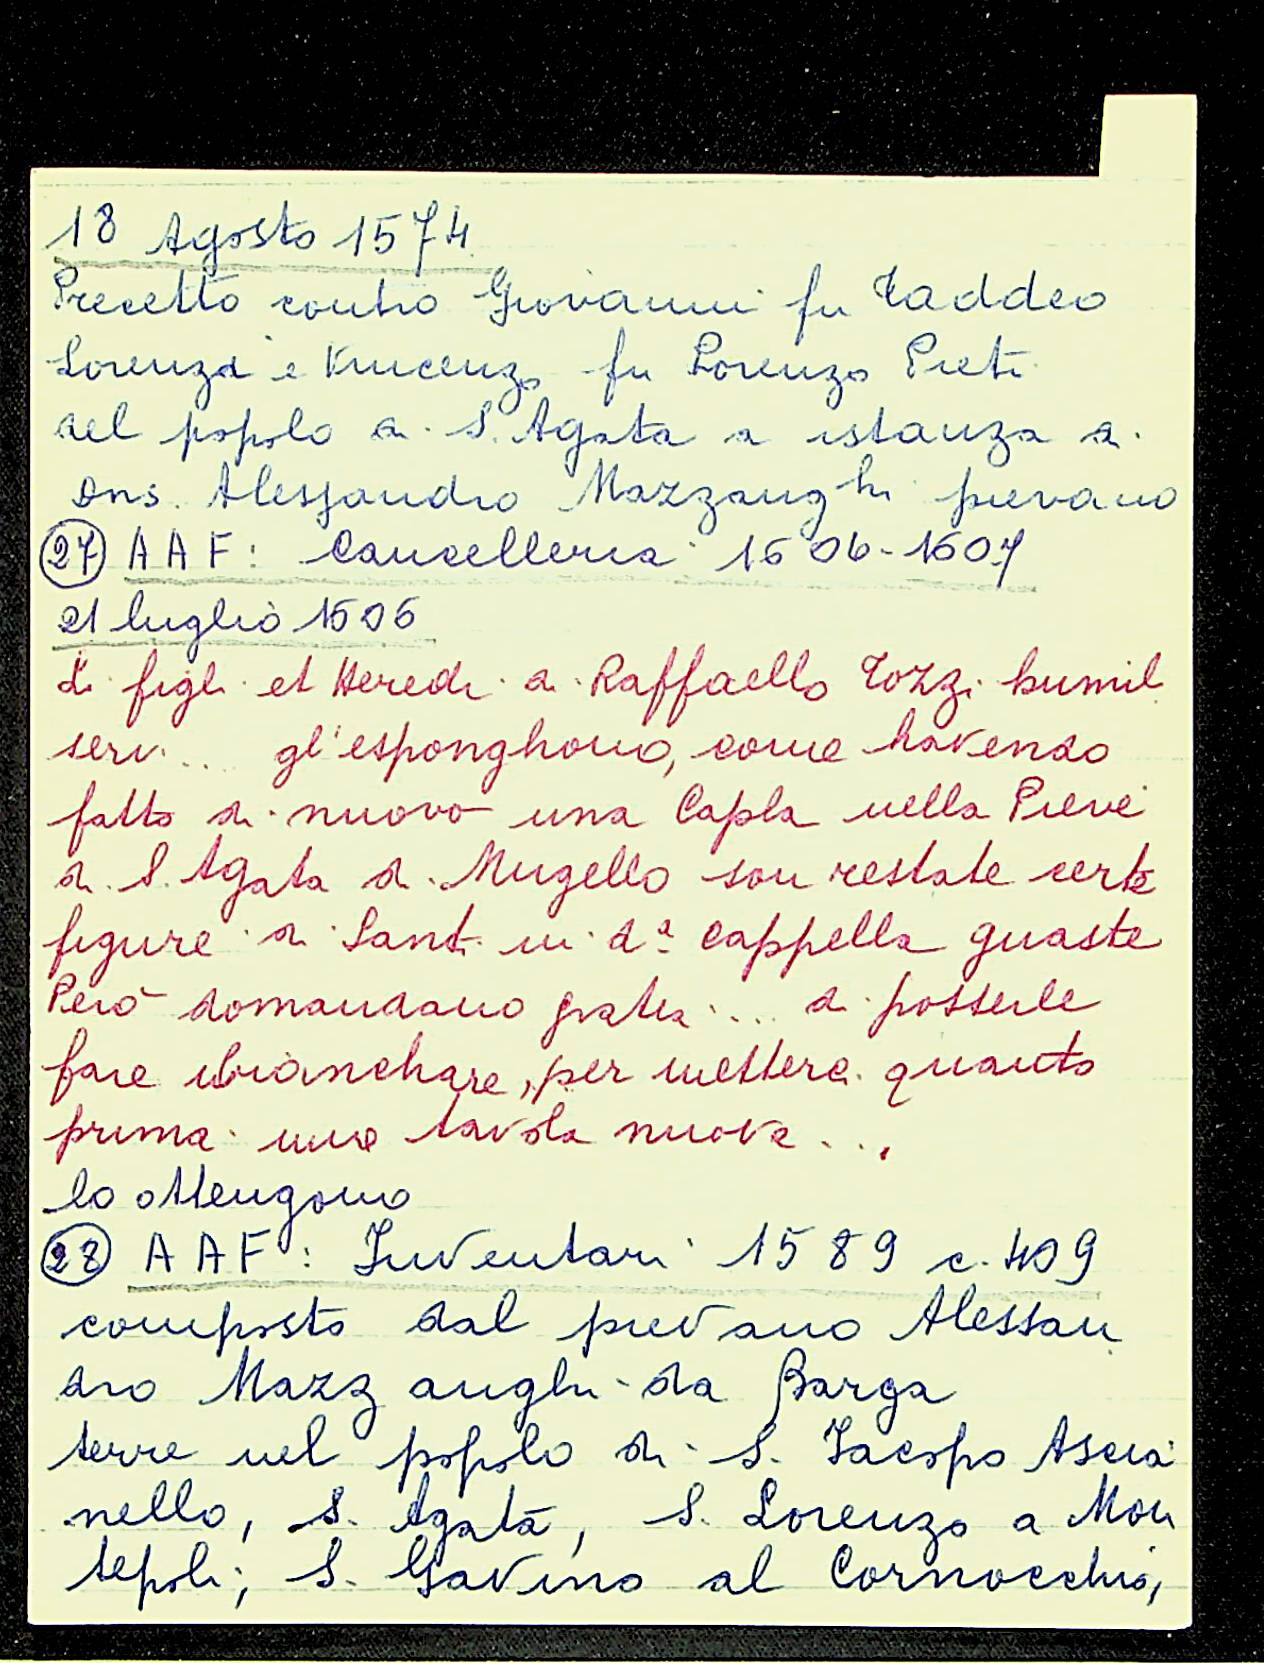 18 Agosto 1574
Precetto contro Giovanni fu Taddeo
Lorenzo e Vincenzo fu Lorenzo Preti
del popolo di S. Agata a istanza di
Dns. Alessandro Mazzanghi pievano
27 AAF: Cancelleria 1606-1607
21 luglio 1606
Li figli et Heredi di Raffaello Tozzi humil
serv... gl'esponghono, come havendo
fatto di nuovo una Capla nella Pieve
di S. Agata di Mugello son restate certe
figure di Santi in da cappella guaste
Però domandano gratia ... di posserle
fare inbianchare, per mettere quanto
prima una tavola nuova ...,
lo ottengono
28 AAF: Inventari 1589 c. 409
composto dal pievano Alessan
dro Mazzanghi da Barga
terre nel popolo di S. Jacopo Ascia
nello, S. Agata, S. Lorenzo a Mon
tepoli; S. Gavino al Cornocchio,